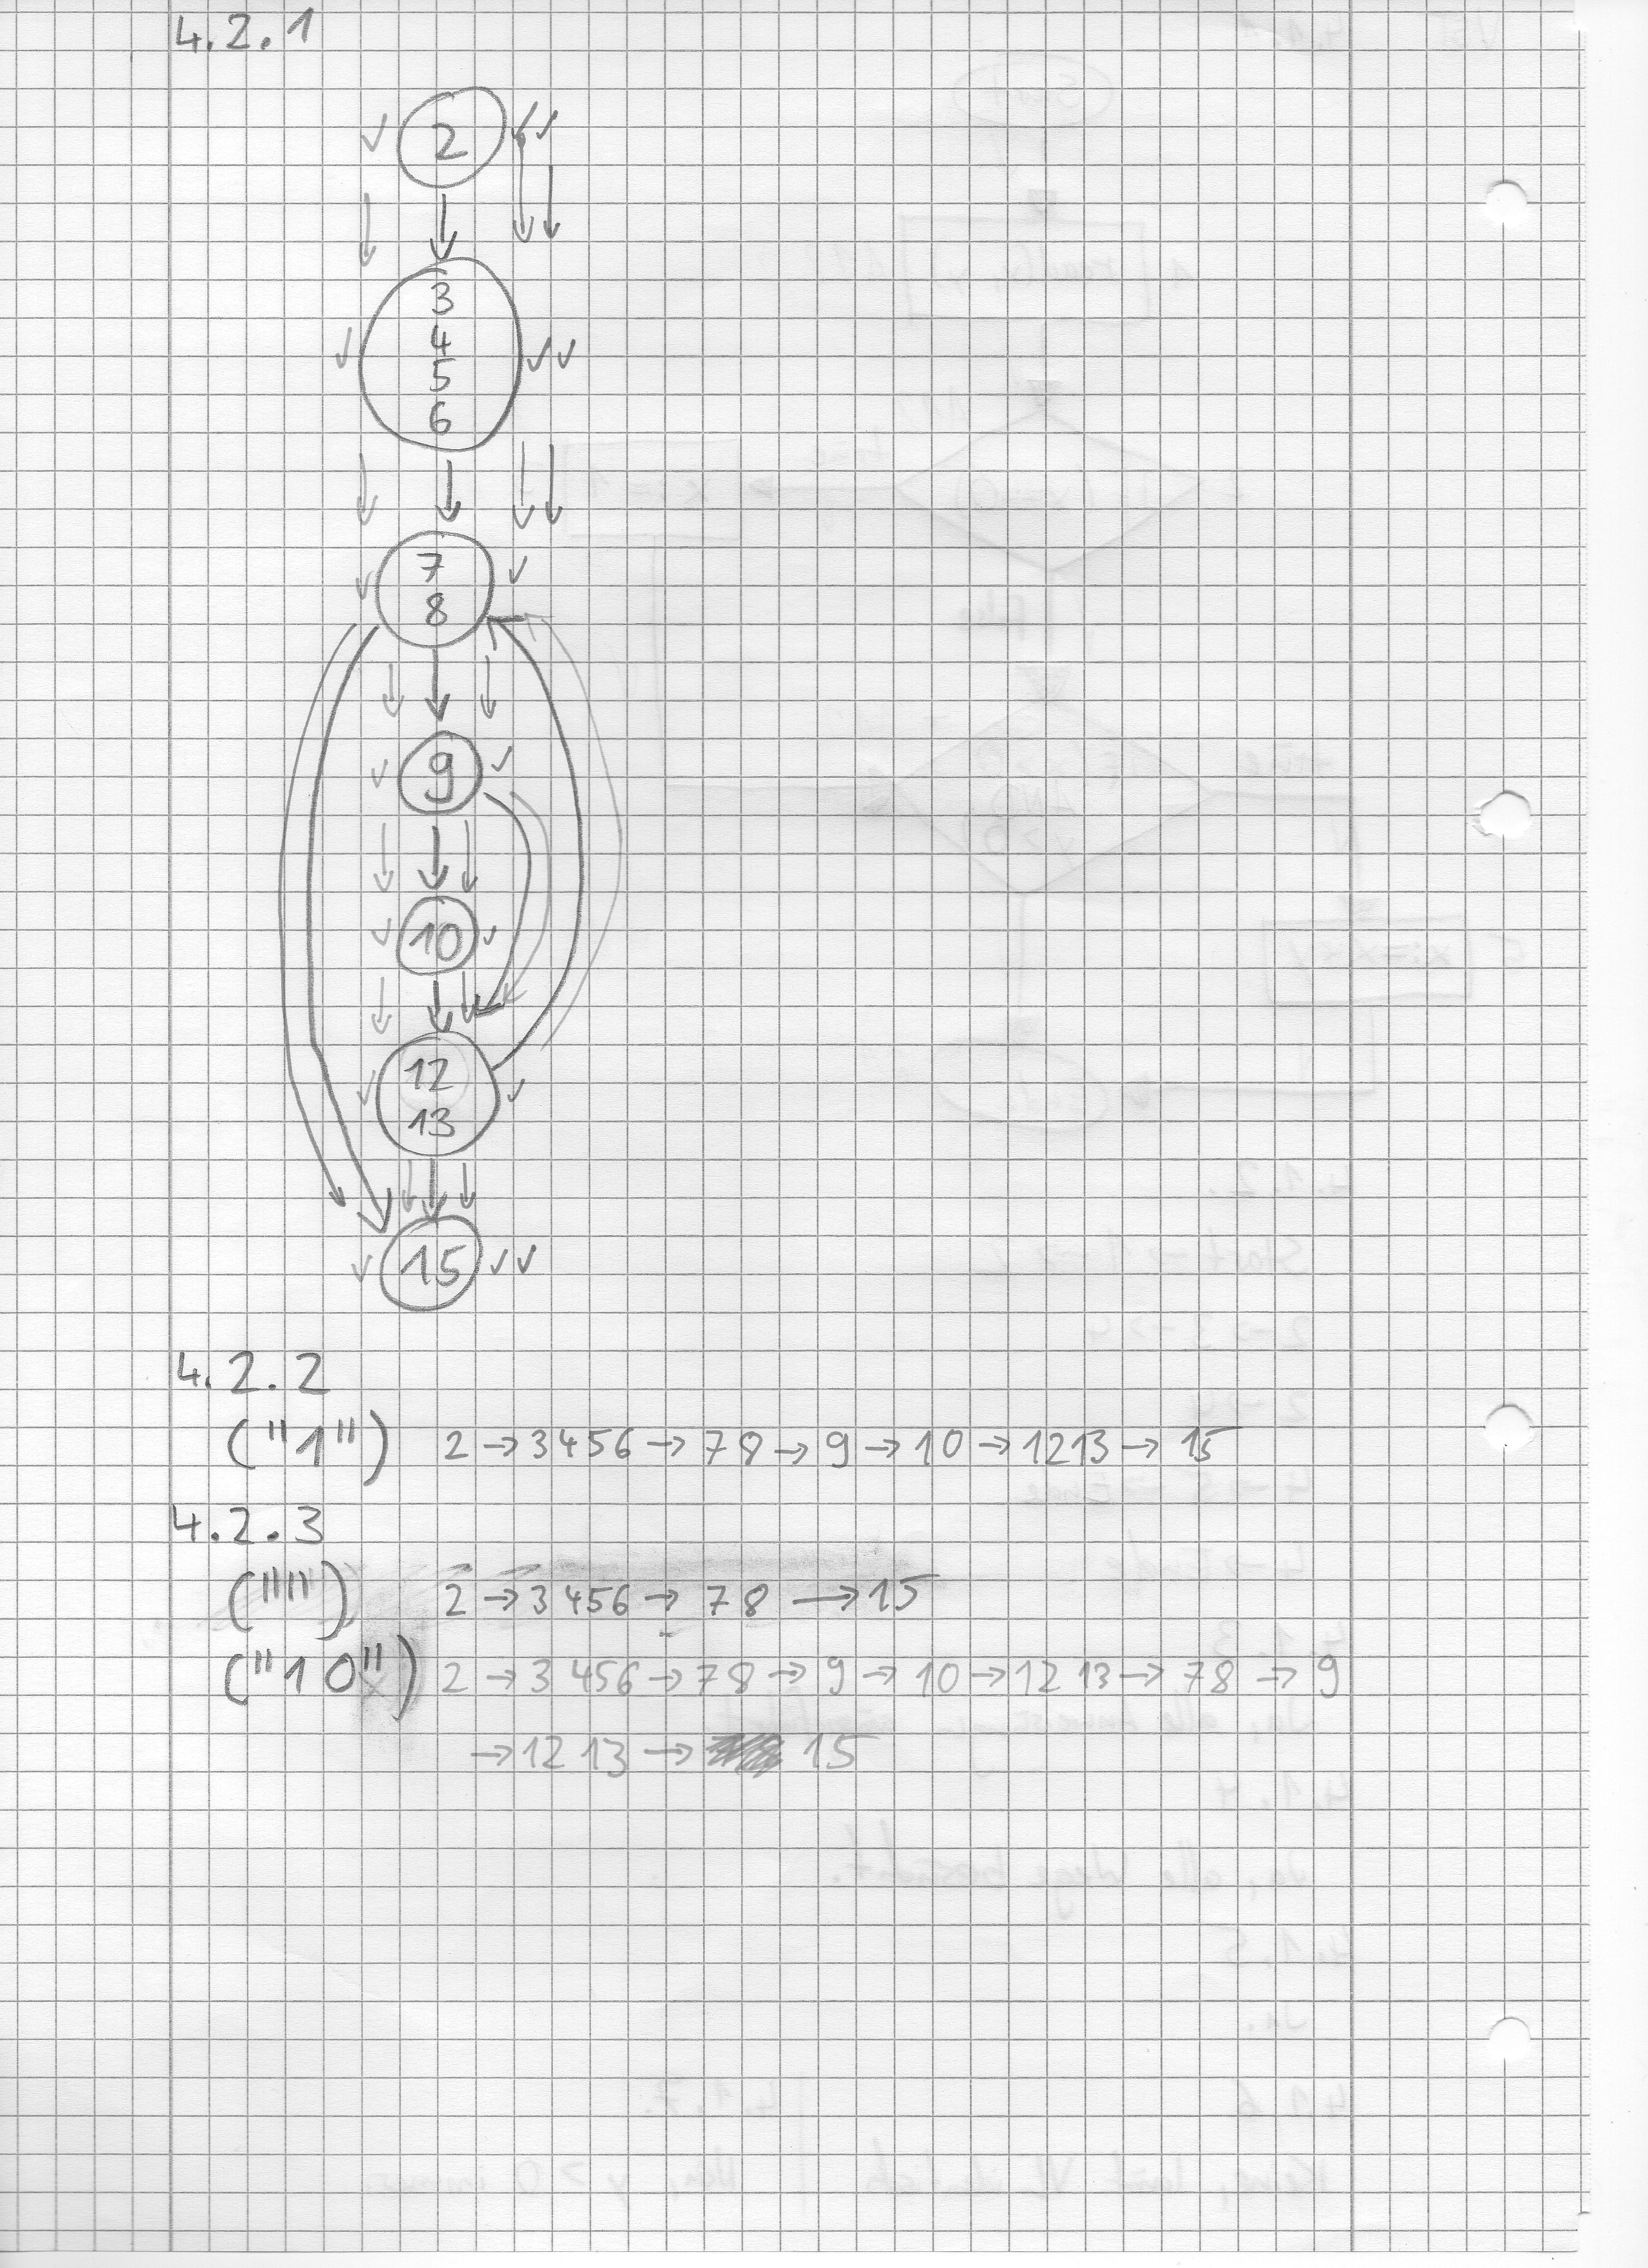 4.2.1
2
3
4
5
6
7
8
9
10
12
13
15
4.2.2
("1") 2 → 3456 → 78 → 9 → 10 → 1213 → 15
4.2.3
("") 2 → 3456 → 78 → 15
("10") 2 → 3456 → 78 → 9 → 10 → 1213 → 78 → 9
→ 1213 → 15